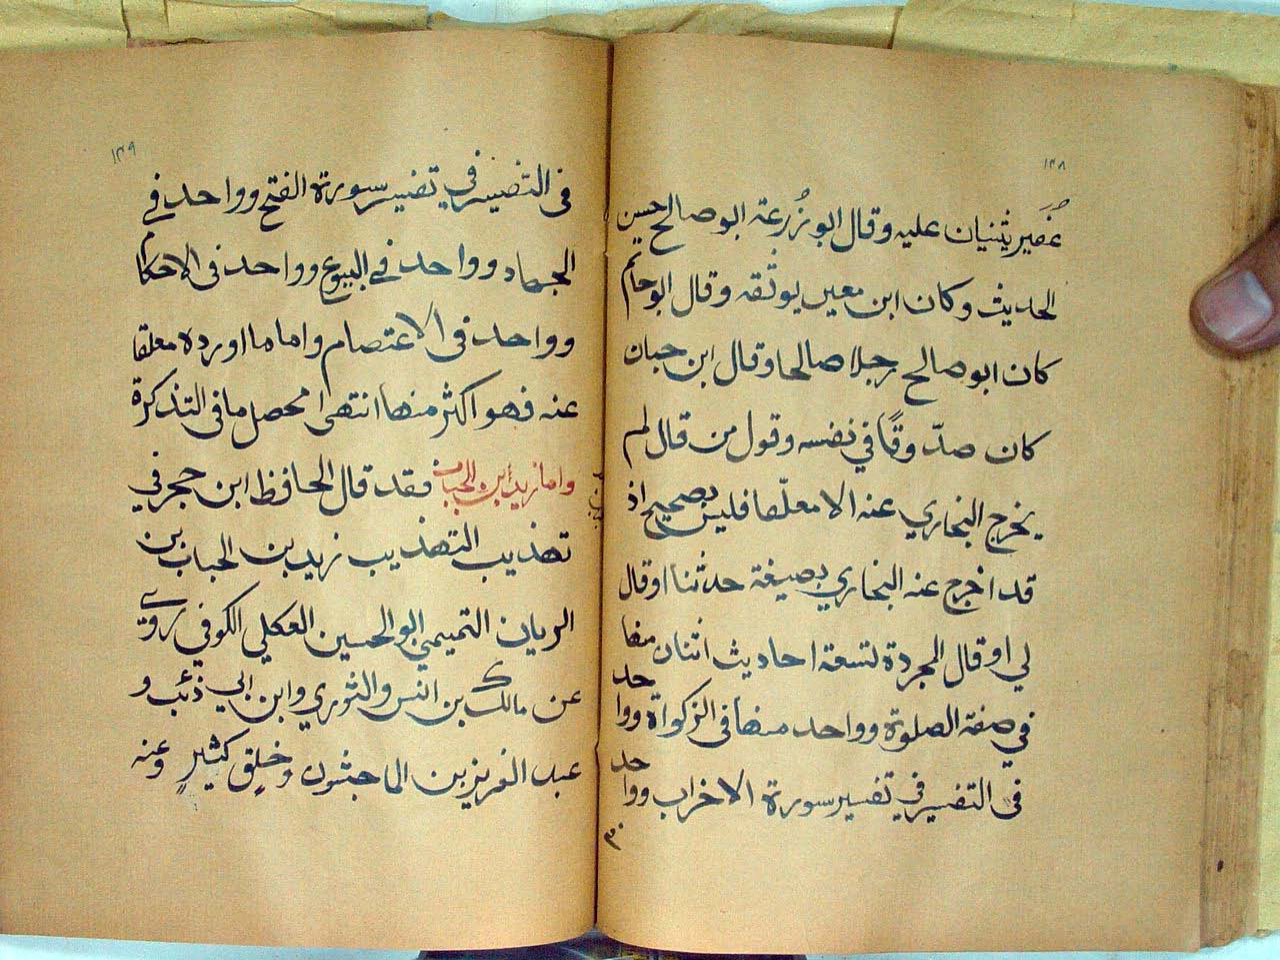 ١٣٨
عُفَير يثنيان عليه وقال ابو زُرعة ابو صالح حسن
الحديث وكان ابن معين يوثّقه وقال ابو حاتم
كان ابو صالح رجلا صالحا وقال ابن حبان
كان صدّوقًا في نفسه وقول من قال لم
يخرج البخاري عنه الا معلّقا فليس بصحيح اذ
قد اخرج عنه البخاري بصيغة حدثنا او قال
لي او قال المجردة تسعة احاديث اثنان منها
في صفة الصلوة وواحد منها فى الزكواة وواحد
فى التفسير في تفسير سورة الاحزاب وواحد
١٣٩
فى التفسير في تفسير سورة الفتح وواحد في
الجهاد وواحد في البيوع وواحد فى الاحكام
وواحد فى الاعتصام واما ما اورده معلقا
عنه فهو اكثر منها انتهى محصل ما فى التذكرة
واما زيد ابن الحباب فقد قال الحافظ ابن حجر في
تهذيب التهذيب زيد بن الحباب بن
الريان التميمي ابو الحسين العكلي الكوفي روى
عن مالك بن انس والثوري وابن ابي ذئب و
عبد العزيز بن الماجشون وخلق كثيرٍ وعنه